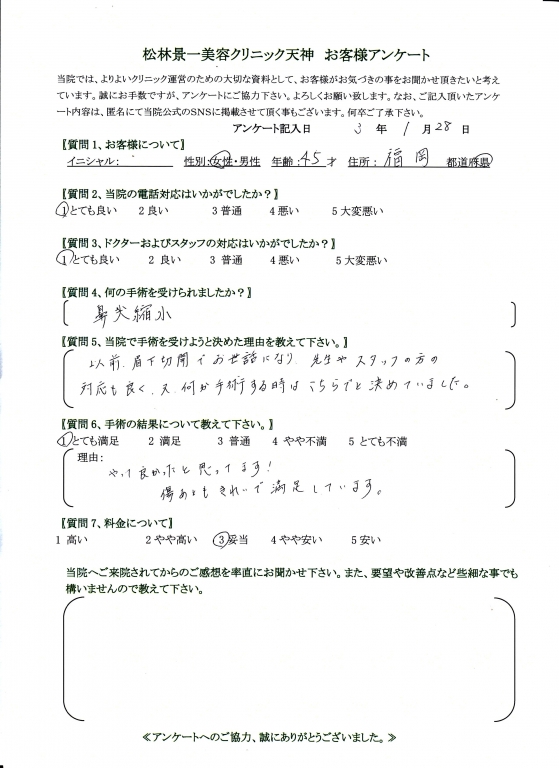 松林景一美容クリニック天神　お客様アンケート
当院では、よりよいクリニック運営のための大切な資料として、お客様がお気づきの事をお聞かせ頂きたいと考え
ています。誠にお手数ですが、アンケートにご協力下さい。よろしくお願い致します。なお、ご記入頂いたアンケ
ート内容は、匿名にて当院公式のSNSに掲載させて頂く事もございます。何卒ご了承下さい。
アンケート記入日　3 年 1 月 28 日
【質問1、お客様について】
イニシャル：　性別：女性・男性　年齢：45 才　住所：福岡　都道府県
【質問2、当院の電話対応はいかがでしたか？】
1 とても良い　2 良い　3 普通　4 悪い　5 大変悪い
【質問3、ドクターおよびスタッフの対応はいかがでしたか？】
1 とても良い　2 良い　3 普通　4 悪い　5 大変悪い
【質問4、何の手術を受けられましたか？】
鼻尖縮小
【質問5、当院で手術を受けようと決めた理由を教えて下さい。】
以前、眉下切開でお世話になり、先生やスタッフの方の
対応も良く、又、何か手術する時はこちらでと決めていました。
【質問6、手術の結果について教えて下さい。】
1 とても満足　2 満足　3 普通　4 やや不満　5 とても不満
理由：
やって良かったと思ってます！
傷あともきれいで満足しています。
【質問7、料金について】
1 高い　2 やや高い　3 妥当　4 やや安い　5 安い
当院へご来院されてからのご感想を率直にお聞かせ下さい。また、要望や改善点など些細な事でも
構いませんので教えて下さい。
≪アンケートへのご協力、誠にありがとうございました。≫